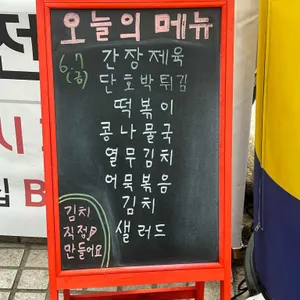 오늘의 메뉴
6.7
(금)
간장제육
단호박튀김
떡볶이
콩나물국
열무김치
어묵볶음
김치
샐러드
김치
직접
만들어요